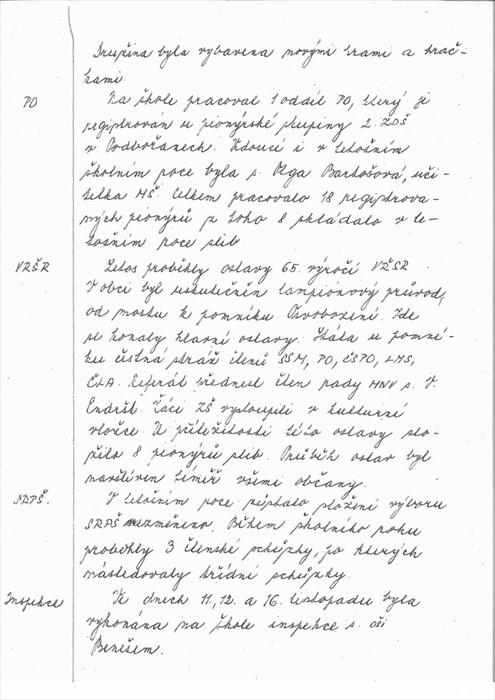 Družina byla vybavena novými hrami a hrač-
kami.
PO Na škole pracoval 1 oddíl PO, který je
registrován u pionýrské skupiny 2. ZDŠ
v Podbořanech. Vedoucí i v letošním
školním roce byla s. Olga Bartošová, uči-
telka MŠ. Celkem pracovalo 18 registrova-
ných pionýrů z toho 8 skládalo v le-
tošním roce slib.
VŘSR Letos proběhly oslavy 65. výročí VŘSR.
V obci byl uskutečněn lampiónový průvod,
od mostu k pomníku Osvobození. Zde
se konaly hlavní oslavy. Stála u pomní-
ku čestná stráž členů SSM, PO, ČSPO, LMS,
ČSLA. Referát přednesl člen rady MNV s. V.
Endršt. Žáci ZŠ vystoupili v kulturní
vložce. U příležitosti této oslavy slo-
žilo 8 pionýrů slib. Průběh oslav byl
navštíven téměř všemi občany.
SRPŠ. V letošním roce zůstalo složení výboru
SRPŠ nezměněno. Během školního roku
proběhly 3 členské schůzky, po kterých
následovaly třídní schůzky.
Inspekce Ve dnech 11., 12. a 16. listopadu byla
vykonána na škole inspekce s. oši
Benešem.